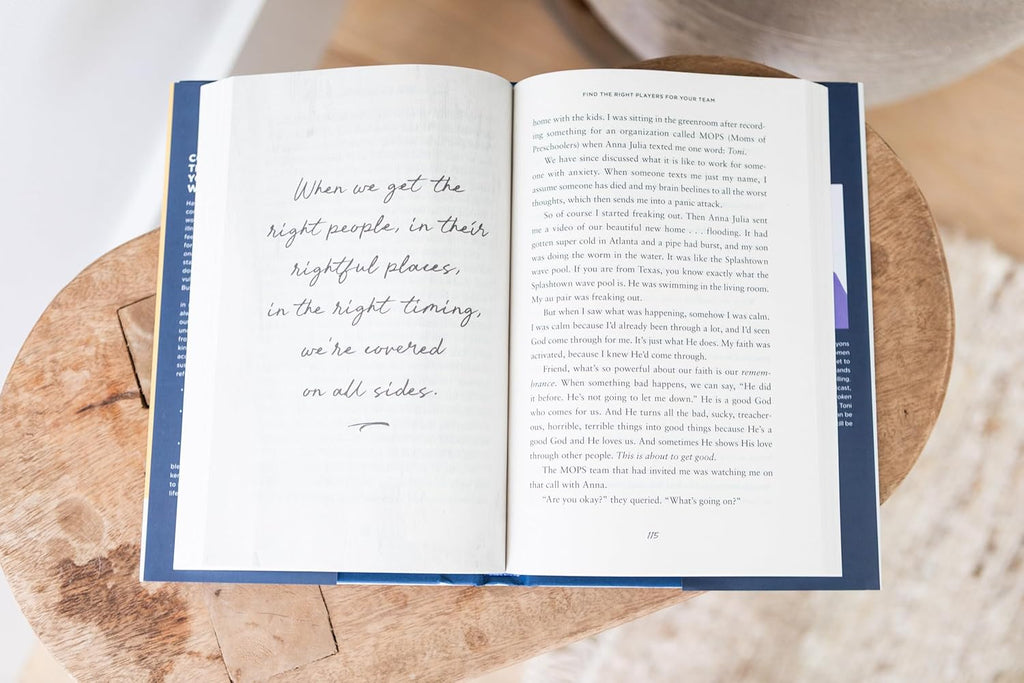 When we get the
right people, in their
rightful places,
in the right timing,
we're covered
on all sides.
FIND THE RIGHT PLAYERS FOR YOUR TEAM
home with the kids. I was sitting in the greenroom after record-
ing something for an organization called MOPS (Moms of
Preschoolers) when Anna Julia texted me one word: Toni.
We have since discussed what it is like to work for some-
one with anxiety. When someone texts me just my name, I
assume someone has died and my brain beelines to all the worst
thoughts, which then sends me into a panic attack.
So of course I started freaking out. Then Anna Julia sent
me a video of our beautiful new home . . . flooding. It had
gotten super cold in Atlanta and a pipe had burst, and my son
was doing the worm in the water. It was like the Splashtown
wave pool. If you are from Texas, you know exactly what the
Splashtown wave pool is. He was swimming in the living room.
My au pair was freaking out.
But when I saw what was happening, somehow I was calm.
I was calm because I'd already been through a lot, and I'd seen
God come through for me. It's just what He does. My faith was
activated, because I knew He'd come through.
Friend, what's so powerful about our faith is our remem-
brance. When something bad happens, we can say, "He did
it before. He's not going to let me down." He is a good God
who comes for us. And He turns all the bad, sucky, treacher-
ous, horrible, terrible things into good things because He's a
good God and He loves us. And sometimes He shows His love
through other people. This is about to get good.
The MOPS team that had invited me was watching me on
that call with Anna.
"Are you okay?" they queried. "What's going on?"
115